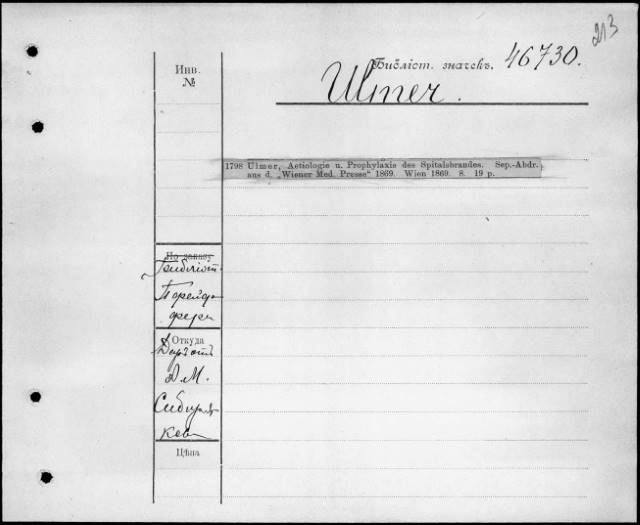 213
Инв.
№
Библіот. значекъ. 46730.
Ulmer.
1798 Ulmer, Aetiologie u. Prophylaxis des Spitalsbrandes. Sep.-Abdr.
aus d. „Wiener Med. Presse“ 1869. Wien 1869. 8. 19 p.
По заказу
Библіот.
Откуда
Д. М.
Сибиря-
ков
Цѣна